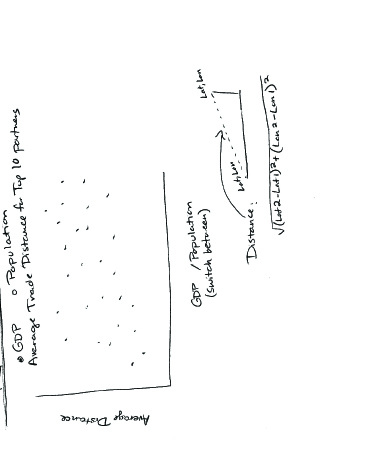 GDP o Population
Average Trade Distance for Top 10 partners
Average Distance
GDP / Population
(switch between)
Lat, Lon
Lat, Lon
Distance:
√(Lat2-Lat1)²+(Lon2-Lon1)²